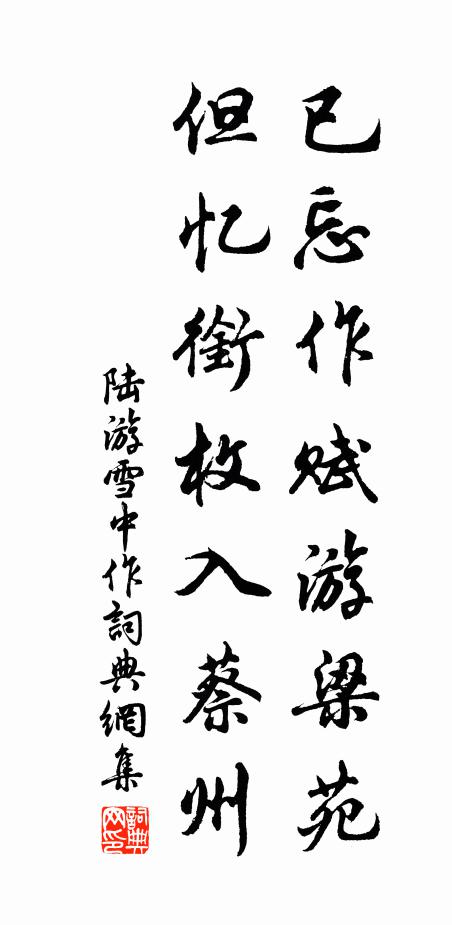 已忘作赋游梁苑
但忆銜枚入蔡州
陆游雪中作詞典網集
詞典网印